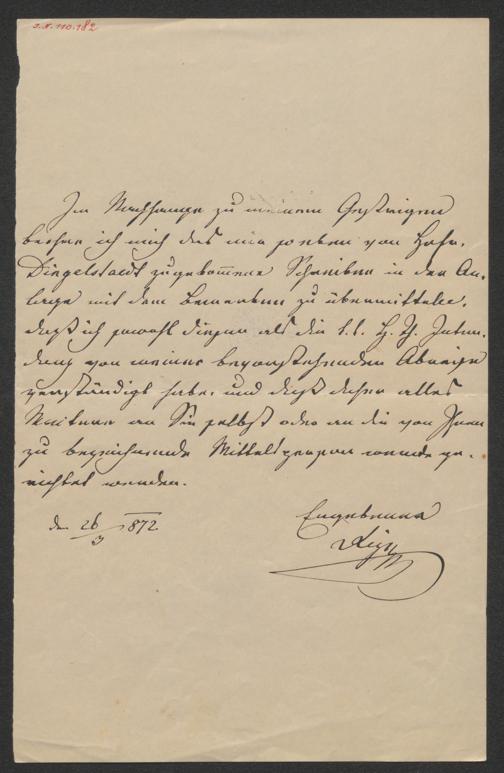 I.N. 110.182
Im Nachhange zu meinem Gestrigen
beehre ich mich das mir soeben von Hofr.
Dingelstedt zugekommene Schreiben in der An-
lage mit dem Bemerken zu übermitteln,
daß ich sowohl diesen als die k. k. H. Th. Inten-
danz von meiner bevorstehenden Abreise
verständigt habe, und daß daher alles
Weitere an Sie selbst oder an die von Ihnen
zu bezeichnende Mittelsperson werde ge-
richtet werden.
den 26/3 1872
Ergebenst